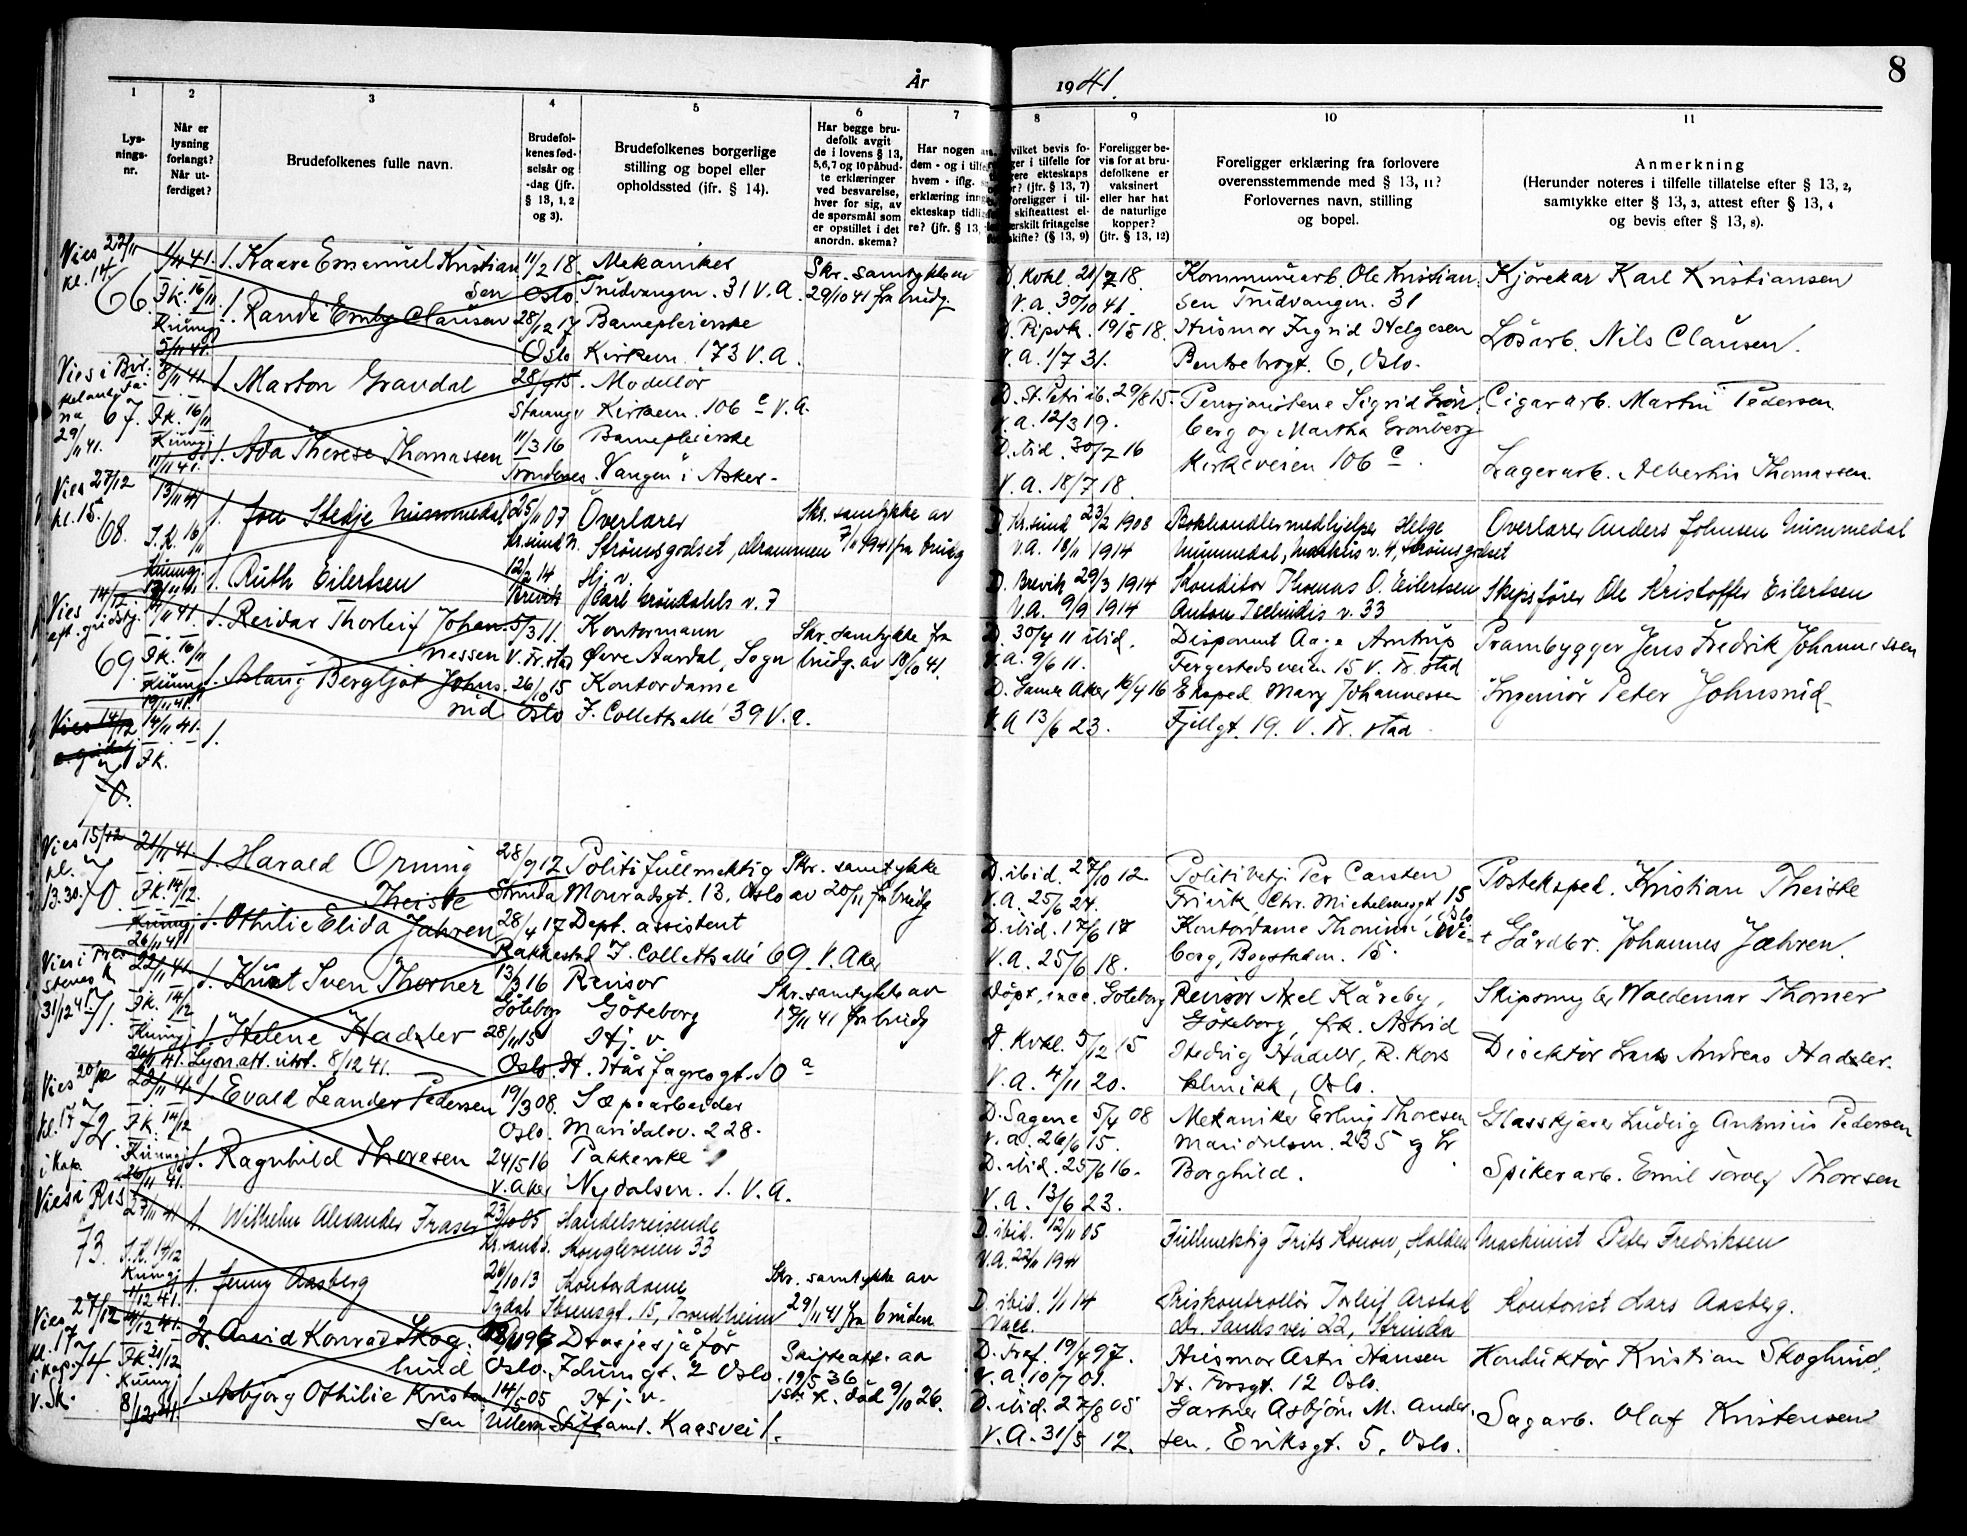 8
År 1941.
1 2 3 4 5 6 7 8 9 10 11
Lys-
nings-
nr.
Når er
lysning
forlangt?
Når ut-
ferdiget?
Brudefolkenes fulle navn.
Brudefol-
kenes fød-
selsår og
-dag (jfr.
§ 13, 1, 2
og 3).
Brudefolkenes borgerlige
stilling og bopel eller
opholdssted (ifr. § 14).
Har begge bru-
defolk avgit
de i lovens § 13,
5,6,7 og 10 påbud-
te erklæringer
ved besvarelse,
hver for sig, av
de spørsmål som
er opstillet i det
anordn. skema?
Har nogen
dem - og i
hvem - iflg.
erklæring
ekteskap
re? (jfr. § 13,
bevis fo-
i tilfelle for
ekteskaps
(jfr. § 13, 7)
i til-
skifteattest el-
fritagelse
skifte? (§ 13, 9)
Foreligger be-
vis for at bru-
defolkene er
vaksinert
eller har hat
de naturlige
kopper?
(jfr. § 13, 12)
Foreligger erklæring fra forlovere
overensstemmende med § 13, 11?
Forlovernes navn, stilling
og bopel.
Anmerkning
(Herunder noteres i tilfelle tillatelse efter § 13, 2,
samtykke efter § 13, 3, attest efter § 13, 4
og bevis efter § 13, 8).
Vies 22/11
kl. 14
66.
1/11 41.
Fk. 16/11
Kunngj.
5/11 41.
1. Kaare Emanuel Kristian
sen
11/2 18.
Oslo.
Mekaniker
Trudvangvn. 31 V.A.
Skr. samtykke av
29/10 41 fra brudg.
D. Kvkl. 21/7 18.
V.a. 30/10 41.
Kommunearb. Ole Kristian-
sen Trudvangvn. 31
Kjørekar Karl Kristiansen
1. Randi Emby Clausen
28/12 17
Oslo
Barnepleierske
Kirkevn. 173 V.A.
D. Pipvk. 19/5 18.
V.a. 1/7 31.
Husmor Ingrid Helgesen
Bentsebrogt. 6, Oslo.
Løsarb. Nils Clausen.
67.
29/11 41.
8/11 41.
Fk. 16/11
Kunngj.
11/11 41.
1. Marton Grandal
28/7 15.
Modellør
Kirkevn. 106 c V.A.
D. St. Petri ib. 29/8 15.
V.a. 12/3 19.
Pensjonistene Sigrid Grøn
berg og Martha Grønberg
Kirkeveien 106 c.
Cigararb. Martin Pedersen
1. Ada Therese Thomassen
11/3 16
Trondenes
Barnepleierske
Vangen i Asker.
D. ibid. 30/7 16
V.A. 18/7 18.
Lagerarb. Albertin Thomassen.
Vies 27/12
kl. 15.
68.
13/11 41
F.K. 16/11
Kunngj.
1. Jon Stedje Nummedal
25/11 07
Kr.sund N.
Overlærer
Strømsgodset, Drammen
Skr. samtykke av
7/11 1941 fra brudg
D. Kr.sund 23/2 1908
V.A. 18/11 1914
Bokhandlermedhjelper Helge
Nummedal, v. 4, Strømsgodset
Overlærer Anders Johnsen Nummedal
1. Ruth Eilertsen
12/2 14
Brevik
Hj. v.
Carl Grøndahls v. 7
D. Brevik 29/3 1914
V.A. 9/9 1914
Konditor Thomas O. Eilertsen
Anton Tschudis v. 33
Skipsfører Ole Kristoffer Eilertsen
Vies 14/12
69.
14/11 41.
Fk. 16/11
Kunngj.
19/11 41.
1. Reidar Thorleif Johan
nessen
5/3 11.
V. Fr.stad
Kontormann
Øvre Aardal, Sogn
Skr. samtykke fra
brudg. av 18/10 41.
D. 30/4 11 ibid.
V.a. 9/6 11.
Disponent Aage Arntrup
Fergestedsveien 15 V. Fr. stad
Prambygger Jens Fredrik Johannessen
1. Aslaug Bergljot Johns
rud
26/10 15
Oslo
Kontordame
J. Colletts allé 39 V.a.
D. Gamle Aker 16/4 16
V.A 13/6 23.
Eksped. Mary Johannessen
Fjellgt. 19. V. Fr. stad
Ingeniør Peter Johnsrud
Vies 14/12
70.
14/11 41.
Fk.
1.
Vies 15/12
kl.
13.30.
70.
21/11 41.
Fk. 14/12.
Kunngj.
26/11 41.
1. Harald Orning
Theiste
28/9 12
Strinda
Politifullmektig
Monradsgt. 13, Oslo
Skr. samtykke
av 20/11 fra brudg
D. ibid. 27/10 12
V.A. 25/6 24.
Politibetj. Per Carsten
Frivik, Chr. Michelsensgt 15
Oslo
Posteksped. Kristian Theiste
1. Othilie Elida Jahren
28/4 17
Rakkestad
Dept. assistent
J. Colletts allé 69. V. Aker
D. ibid. 17/6 17
V.A. 25/6 18.
Kontordame
berg, Bogstadvn. 15.
+ Gårdbr. Johannes Jæhren.
31/12 41
71.
22/11 41.
Fk. 14/12
Kunngj.
26/11 41.
1. Knut Sven Thorner
13/3 16
Göteborg
Revisor
Göteborg
Skr. samtykke av
fra brudg
Döpt. Göteborg
Revisor Axel Käreby,
Göteborg, frk. Astrid
Hedvig Hadeler, R. Kors
klinikk, Oslo.
Waldemar Thorner
1. Helene Hadeler
Lysn.att. utst. 8/12 41.
28/11 15
Oslo.
Hj. v.
H. Hårfagresgt. 10 a
D. Kvkl. 5/2 15
V.A. 4/11 20.
Direktør Andreas Hadeler.
Vies 20/12
kl. 17
i Kap.
72.
22/11 41.
Fk. 14/12
Kunngj.
26/11 41.
1. Evald Leander Pedersen
19/3 08.
Oslo.
Sæpearbeider
Maridalsv. 228.
D. Sagene 5/4 08
V.a. 26/6 15.
Mekaniker Erling Thoresen
Maridalsvn. 235 og fr
Borghild.
Glasskjærer Ludvig Antonius Pedersen
1. Ragnhild Thoresen
24/5 16
V. Aker
Pakkerske
Nydalsvn. 1. V.A.
D. ibid. 25/6 16.
V.A. 13/6 23.
Spikerarb. Emil Torolf Thoresen
Vies i Ris
73.
27/11 41
F.K. 14/12
Kunngj.
1/12 41.
1. Wilhelm Alexander Fraser
23/10 05
Kr.sand S.
Handelsreisende
Kongleveien 33
D. ibid. 12/11 05
V.A. 22/11 1941
Fullmektig Frits Konow, Holden
Maskinist Peter Fredriksen
1. Jenny Aasberg
26/10 13
Tydal
Kontordame
15, Trondheim
Skr. samtykke av
29/11 41 fra bruden
D. ibid. 1/1 14
Vacc.
Priskontrollør Torleif Arstad
Sands vei 22, Strinda
Kontorist Lars Aasberg.
Vies 27/12
kl. 17
i kap.
V. Sk.
74.
4/12 41.
Fk. 21/12
Kunngj.
8/12 41.
2. Arvid Konrad Skog-
lund
Oslo.
Drosjesjåfør
Idunsgt. 2 Oslo
Skifteatt. av
19/5 36
1ste k. død 9/10 26.
D. Tref. 19/4 97.
V.a. 10/7 01.
Husmor Astri Hansen
H. Tvrsgt. 12 Oslo.
Konduktør Kristian Skoglund.
1. Asbjørg Othilie Kristen
sen
14/5 05
Ullern
Hj. v.
Kaasvei 1.
D. ibid. 27/8 05
V.A. 31/5 12.
Gartner Asbjørn M. Ander
sen, Eriksgt. 5, Oslo.
Sagarb. Olaf Kristensen